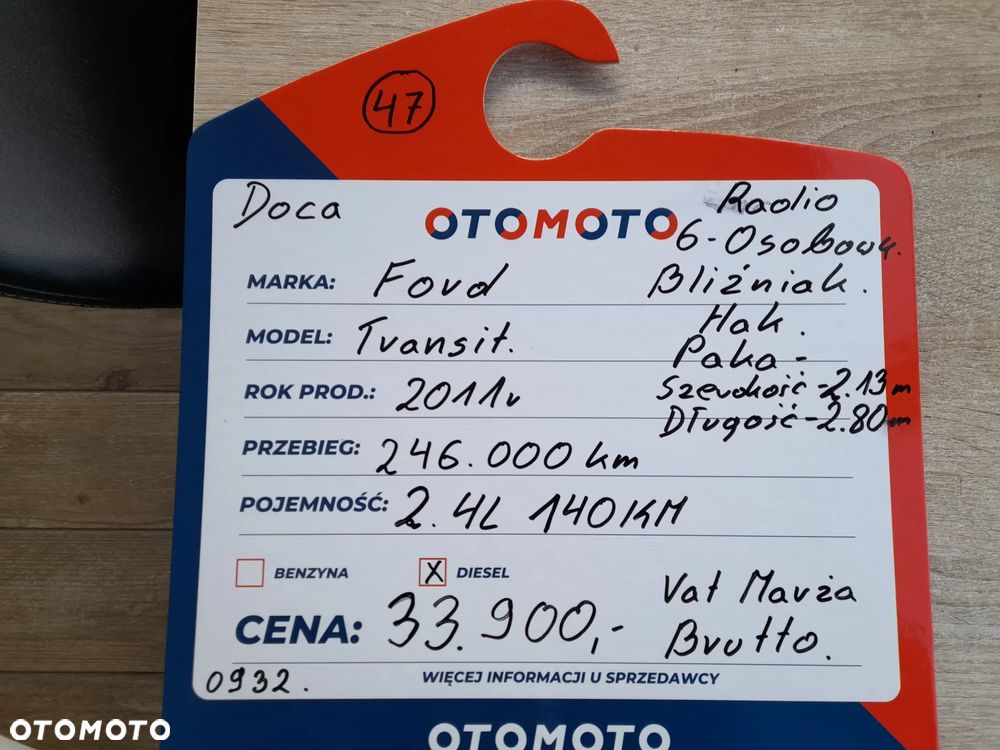 47
Doca
OTOMOTO
Radio
6-Osobowy.
MARKA: Ford
Bliźniak.
Hak.
MODEL: Transit.
Paka:-
ROK PROD.: 2011r
Szerokość-2.13m
Długość-2.80m
PRZEBIEG: 246.000 km
POJEMNOŚĆ: 2.4L 140KM
BENZYNA X DIESEL
CENA: 33.900,-
Vat Marża
Brutto.
0932.
WIĘCEJ INFORMACJI U SPRZEDAWCY
OTOMOTO
OTOMOTO